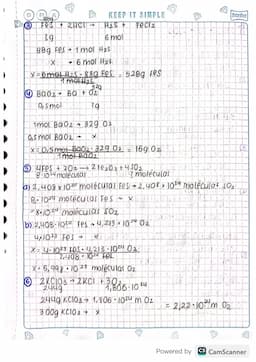 KEEP IT SIMPLE
③ FeS + 2HCl → H2S + FeCl2
1g 6mol
88g FeS → 1 mol H2S
X → 6 mol H2S
X = 6mol H2S · 88g FeS = 528g FeS
1 mol H2S
④ BaO2 → Ba + O2
32g
0,5mol ?g
1mol BaO2 → 32g O2
0,5mol BaO2 → X
X = 0,5mol BaO2 · 32g O2 = 16g O2
1mol BaO2
⑤ 4FeS + 7O2 → 2Fe2O3 + 4SO2
8·10²⁴ moléculas ? moléculas
a) 2,408 × 10²⁴ moléculas FeS → 2,408 × 10²⁴ moléculas SO2
8·10²⁴ moléculas FeS → X
= 8×10²⁴ moléculas SO2
b) 2,408·10²⁴ FeS → 4,213·10²⁴ O2
FeS → X
X = FeS · 4,213·10²⁴ O2
2,408·10²⁴ FeS
moléculas O2
⑥ 2KClO3 → 2KCl + 3O2
244g 1,806·10²⁴
244g KClO3 → 1,806·10²⁴ m O2
300g KClO3 → X
= 2,22·10²⁴ m O2
Powered by CS CamScanner